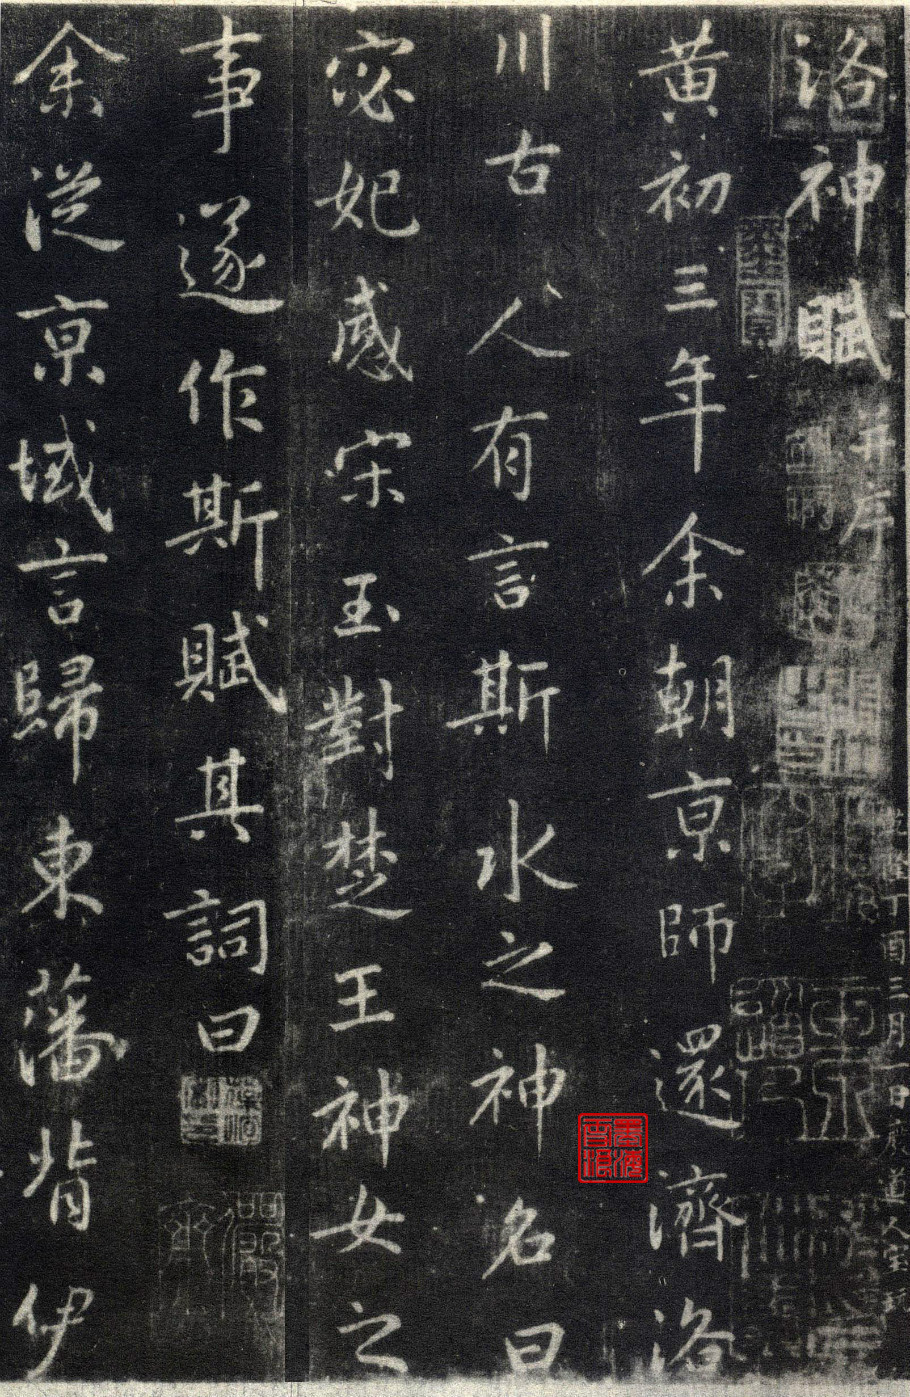 洛神賦 并序
黄初三年余朝京師還濟洛
川古人有言斯水之神名曰
宓妃感宋玉對楚王神女之
事遂作斯賦其詞曰
余從京域言歸東藩背伊
丁酉三月一日
道人